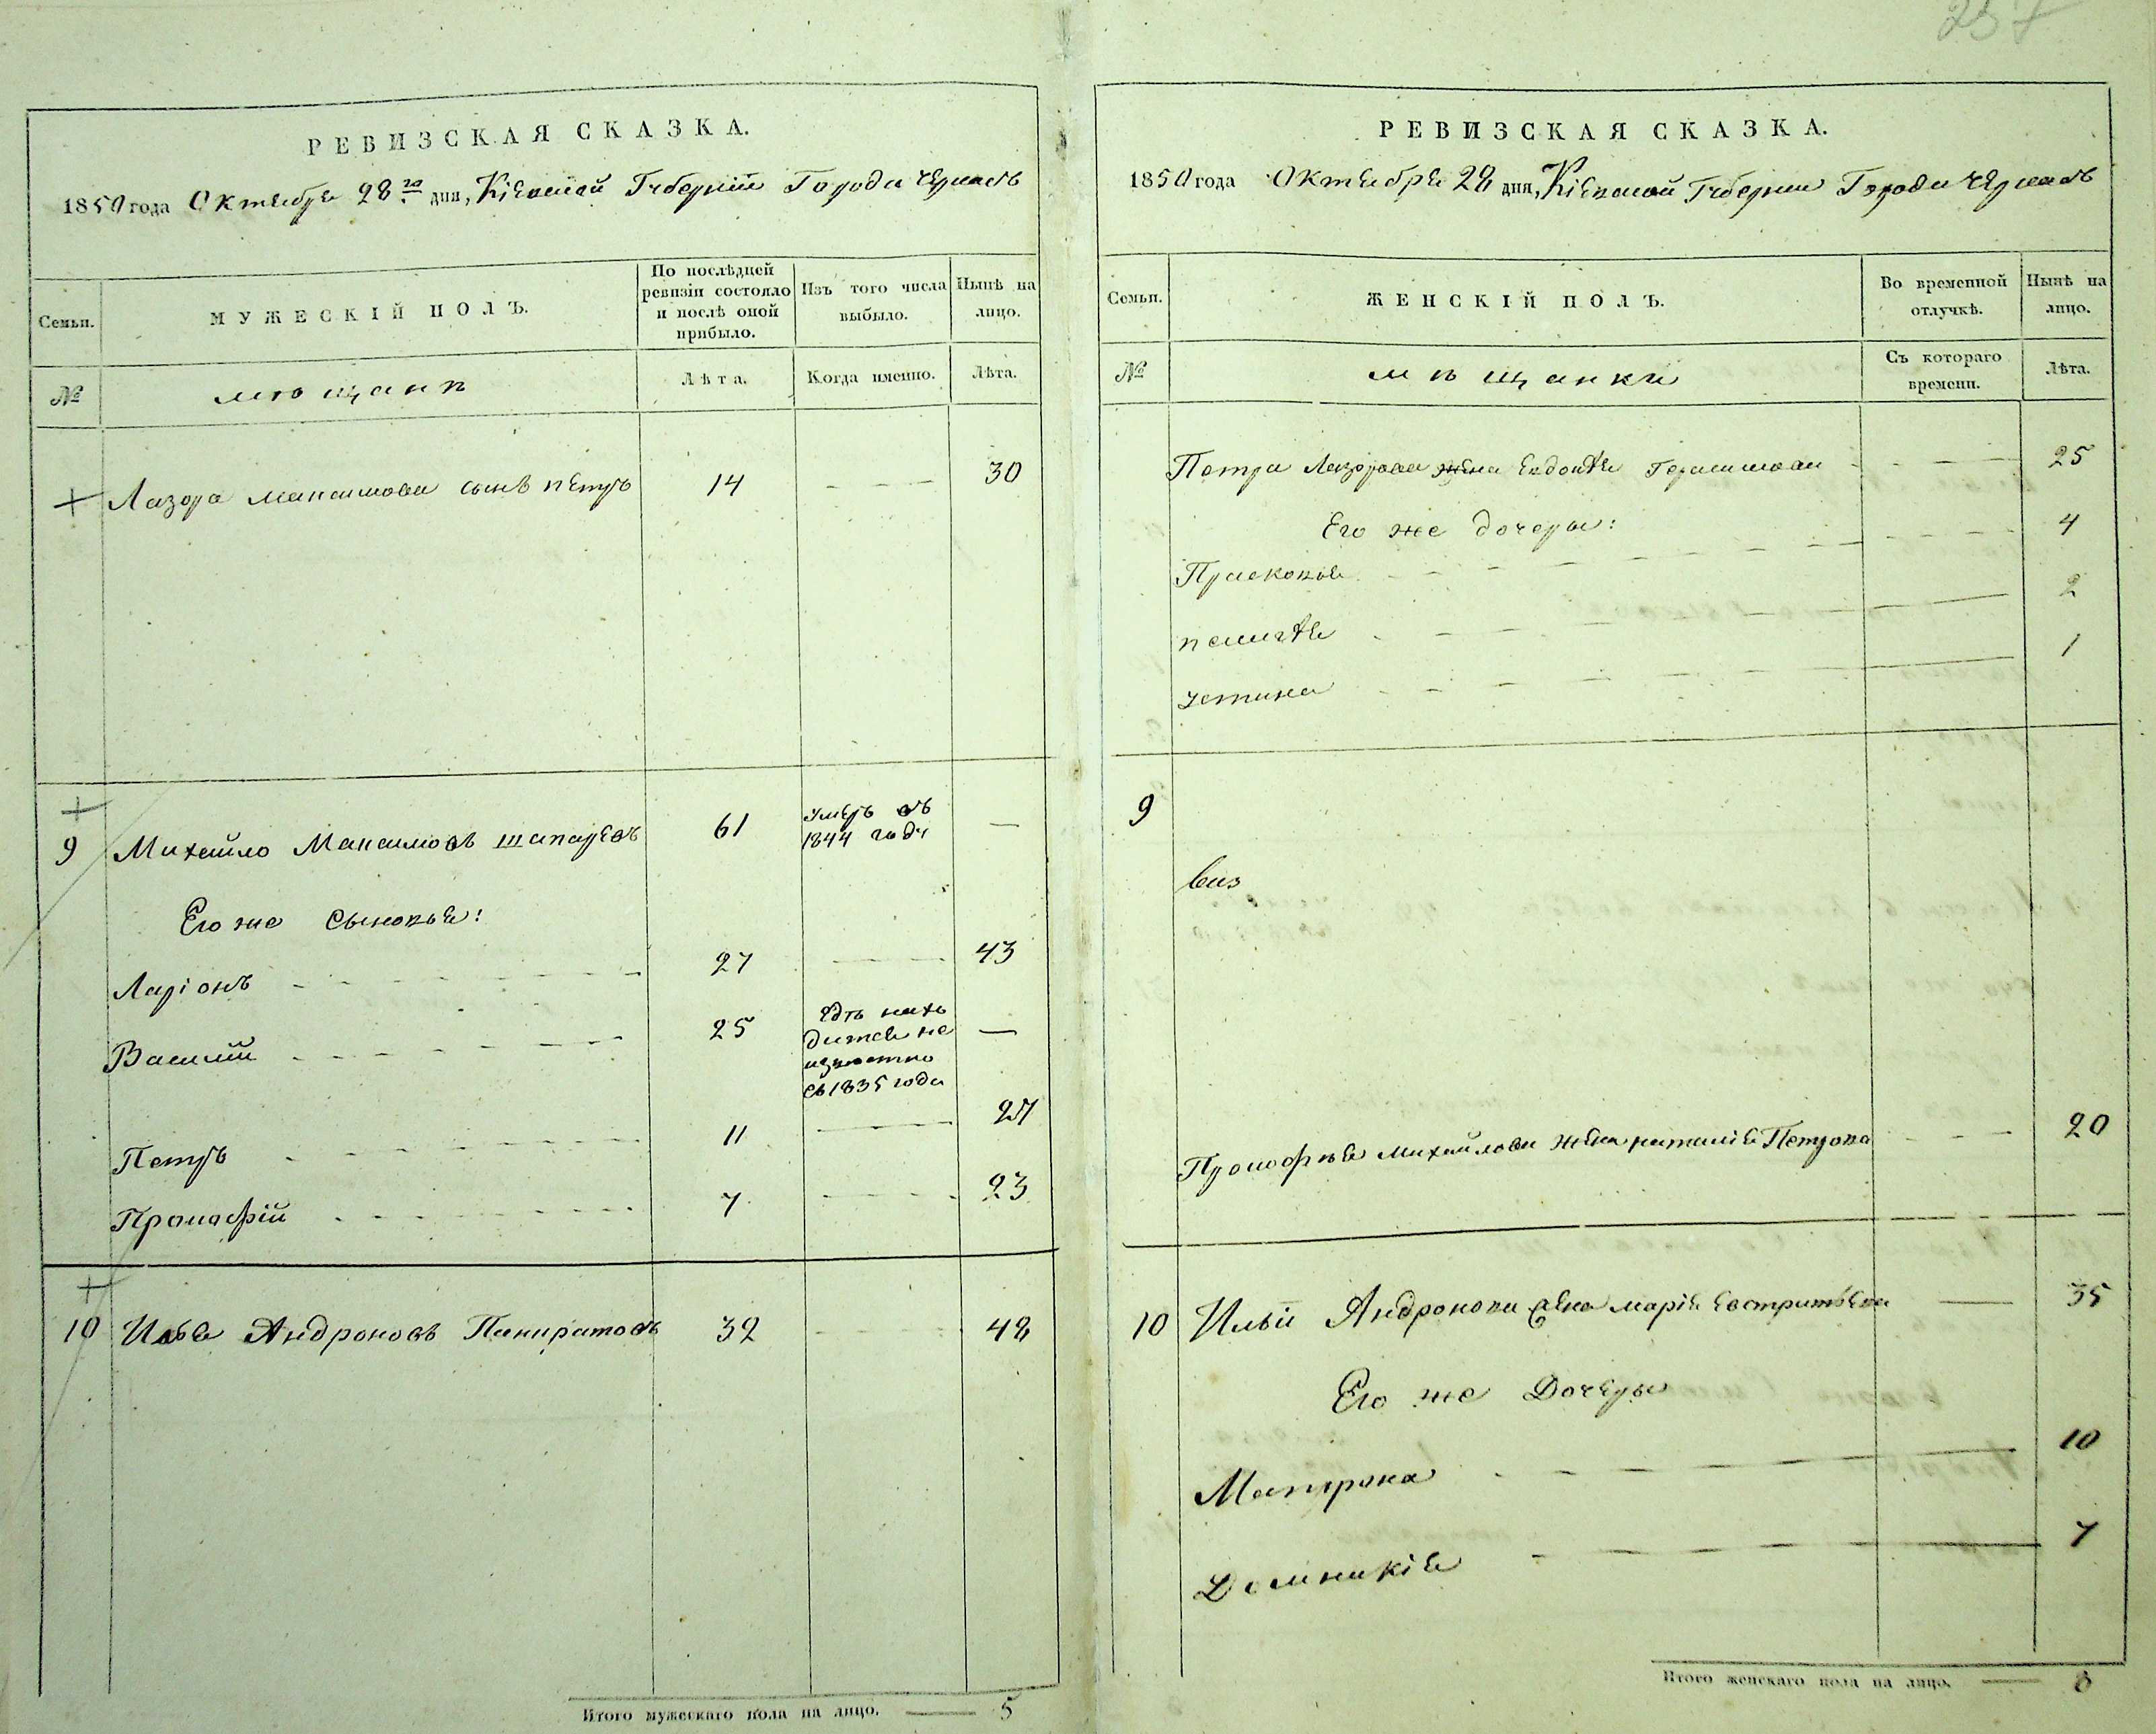 257
РЕВИЗСКАЯ СКАЗКА.
1850 года Октября 28го дня, Кіевской Губерніи Города Черкасъ
Семьи.
МУЖЕСКІЙ ПОЛЪ.
По послѣдней ревизіи состояло и послѣ оной прибыло.
Изъ того числа выбыло.
Нынѣ на лицо.
№
мѣщанѣ
Лѣта.
Когда именно.
Лѣта.
Лазора Максимова сынъ Петръ 14 30
9 Михайло Максимовъ Шапаревъ 61 умеръ въ 1844 году —
Его же Сыновья:
Ларіонъ 27 43
Василій 25 гдѣ нахо
дится не
извѣстно
съ 1835 года —
Петръ 11 27
Прокофій 7 23
10 Илья Андроновъ Панкратовъ 32 48
Итого мужескаго пола на лицо. — 5
РЕВИЗСКАЯ СКАЗКА.
1850 года Октября 28 дня, Кіевской Губерніи Города Черкасъ
Семьи.
ЖЕНСКІЙ ПОЛЪ.
Во временной отлучкѣ.
Нынѣ на лицо.
№
мѣщанки
Съ котораго времени.
Лѣта.
Петра Лазорова жена Евдокія Герасимова 25
Его же дочеры:
Прасковья 4
2
устина 1
9
Прокофія Михайлова жена наталія Петрова 20
10 Ильи Андронова жена марія Евстратьева 35
Его же Дочеры
Матрона 10
Домникія 7
Итого женскаго пола на лицо. — 8